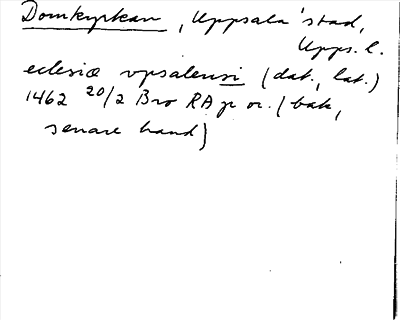 Domkyrkan, Uppsala stad,
Upps. l.
eclesiæ vpsalensi (dat., lat.)
1462 20/2 Bro RAp or. (bak,
senare hand)